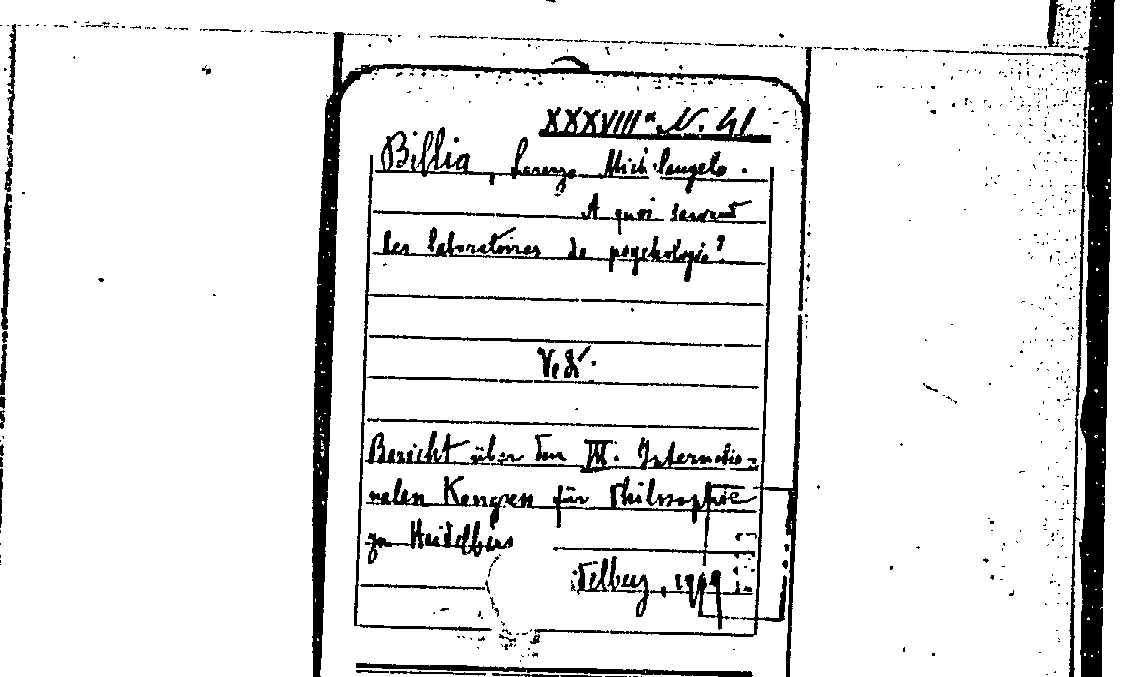 XXXVIIIª N. 41
Billia, Lorenzo Michelangelo.
A quoi servent
les laboratoires de psychologie?
Ved.
Bericht über den III. Internatio-
nalen Kongress für Philosophie
zu Heidelberg
delberg, 1909